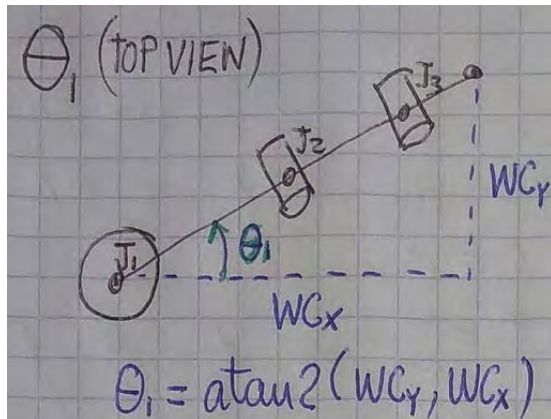 θ₁ (TOP VIEW)
J₃
J₂
WCY
J₁
θ₁
WCX
θ₁ = atan2(WCY, WCX)